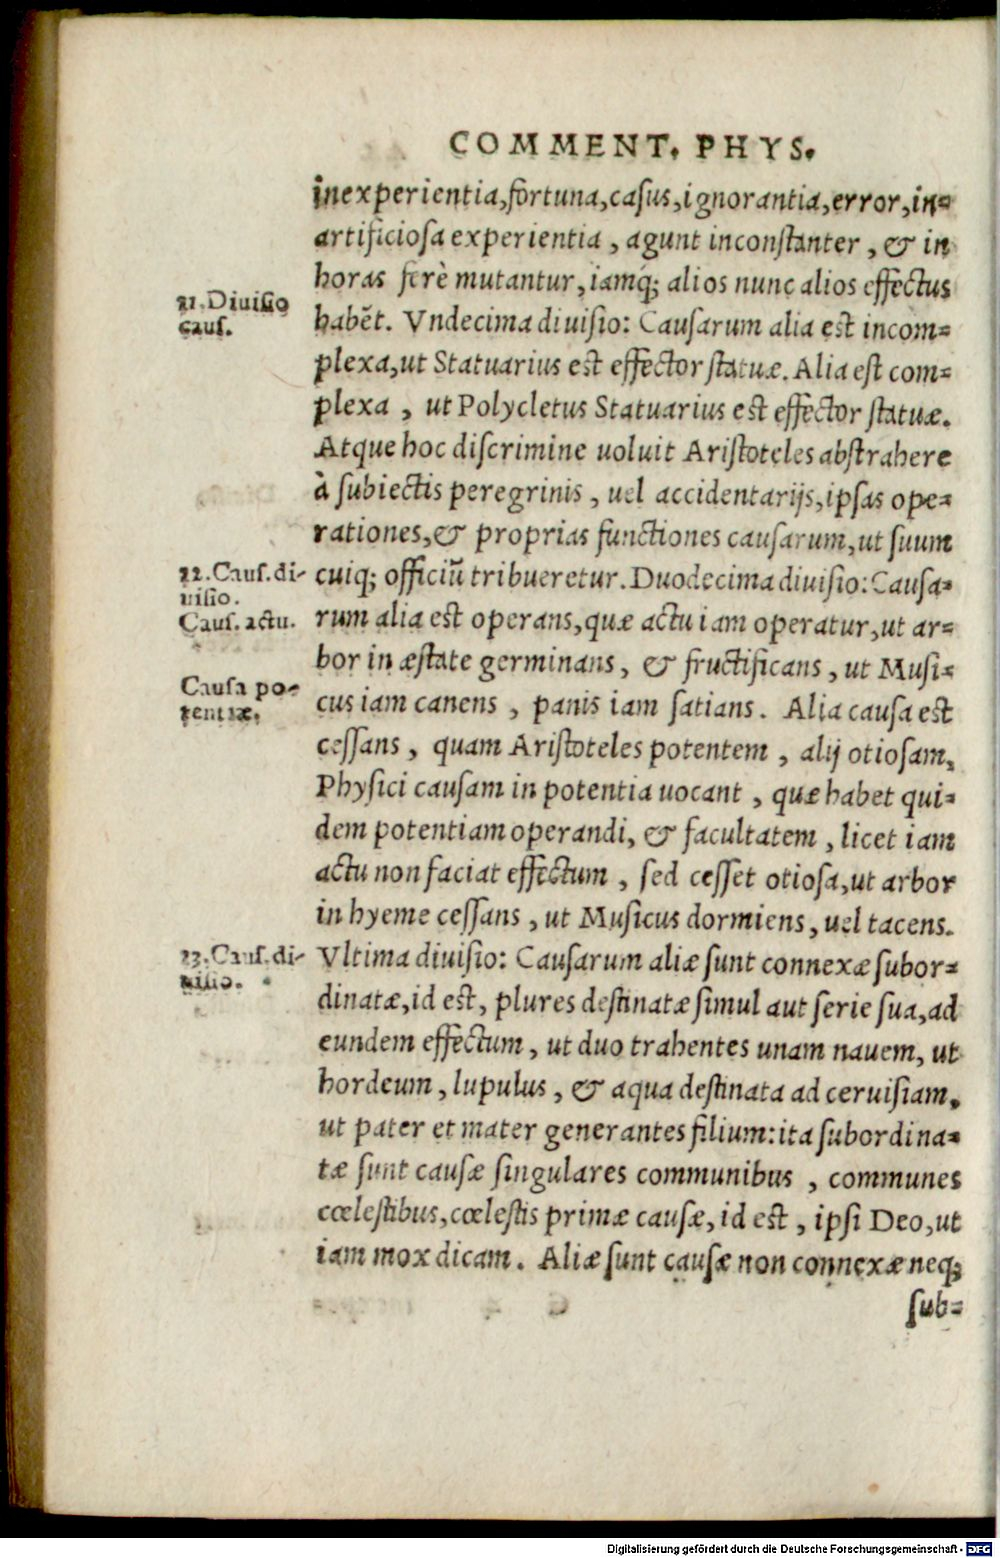 COMMENT. PHYS.
inexperientia, fortuna, casus, ignorantia, error, in=
artificiosa experientia, agunt inconstanter, & in
horas ferè mutantur, iamq́; alios nunc alios effectus
11. Diuisio
caus.
habẽt. Vndecima diuisio: Causarum alia est incom=
plexa, ut Statuarius est effector statuæ. Alia est com=
plexa, ut Polycletus Statuarius est effector statuæ.
Atque hoc discrimine uoluit Aristoteles abstrahere
à subiectis peregrinis, uel accidentarijs, ipsas ope=
rationes, & proprias functiones causarum, ut suum
12. Caus. di-
uisio.
Caus. actu.
cuiq; officiũ tribueretur. Duodecima diuisio: Causa=
rum alia est operans, quæ actu iam operatur, ut ar=
bor in æstate germinans, & fructificans, ut Musi=
Causa po-
tentiæ.
cus iam canens, panis iam satians. Alia causa est
cessans, quam Aristoteles potentem, alij otiosam,
Physici causam in potentia uocant, quæ habet qui=
dem potentiam operandi, & facultatem, licet iam
actu non faciat effectum, sed cesset otiosa, ut arbor
in hyeme cessans, ut Musicus dormiens, uel tacens.
13. Caus. di-
uisio.
Vltima diuisio: Causarum aliæ sunt connexæ subor=
dinatæ, id est, plures destinatæ simul aut serie sua, ad
eundem effectum, ut duo trahentes unam nauem, ut
hordeum, lupulus, & aqua destinata ad ceruisiam,
ut pater et mater generantes filium: ita subordina=
tæ sunt causæ singulares communibus, communes
cœlestibus, cœlestis primæ causæ, id est, ipsi Deo, ut
iam mox dicam. Aliæ sunt causæ non connexæ neq;
sub=
Digitalisierung gefördert durch die Deutsche Forschungsgemeinschaft - DFG